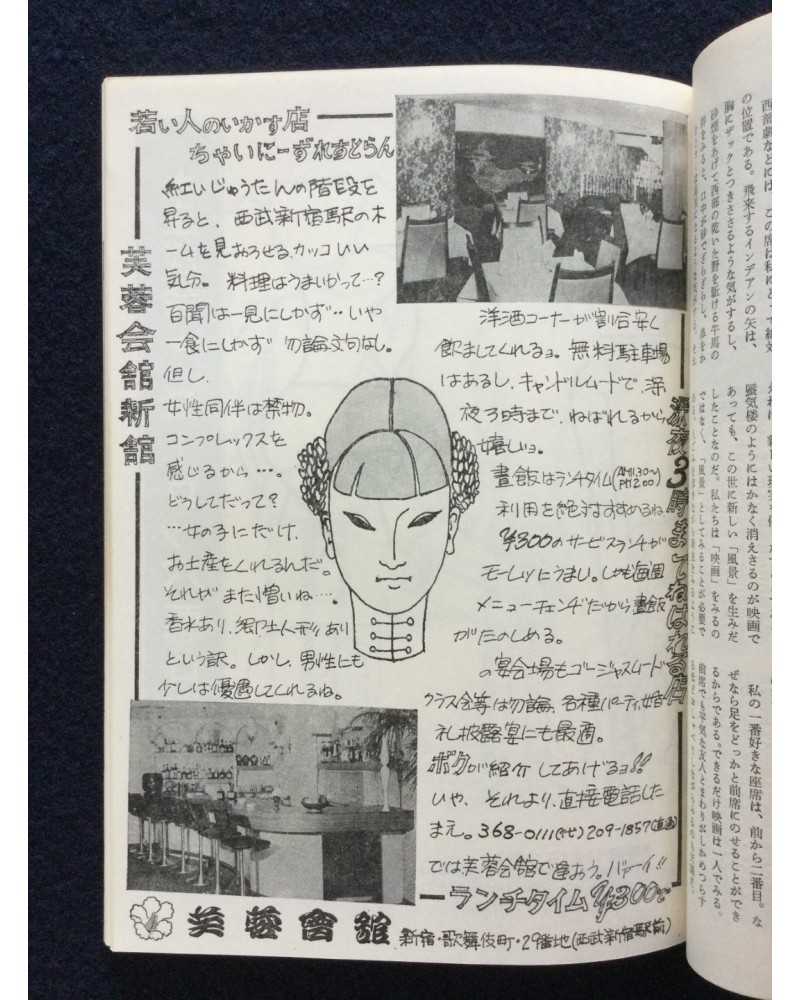 若い人のいかす店
ちゃいにーずれすとらん
芙蓉会舘新舘
紅いじゅうたんの階段を
昇ると、西武新宿駅のホ
ームを見おろせる、カッコいい
気分。料理はうまいかって…?
百聞は一見にしかず‥いや
一食にしかず 勿論文句なし。
但し、
女性同伴は禁物。
コンプレックスを
感じるから…。
どうしてだって?
…女の子にだけ、
お土産をくれるんだ。
それがまた憎いね…。
香水あり、郷土人形あり
という訳。しかし、男性にも
少しは優遇してくれるね。
洋酒コーナーが割合安く
飲ましてくれるョ。無料駐車場
はあるし、キャンドルムードで、深
夜3時まで、ねばれるから
嬉しいョ。
昼飯はランチタイム(AM11.30〜PM2.00)
利用を絶対おすすめるね
¥300のサービスランチが
モーレツにうまい。しかも毎週
メニューチェンヂだから昼飯
がたのしめる。
の宴会場もゴージャスムード
クラス会等は勿論、各種パーティ、婚
礼披露宴にも最適。
ボクが紹介してあげるョ!!
いや、それより、直接電話した
まえ。368-0111(代)209-1857(直通)
では芙蓉会舘で逢おう。バァーイ!!
深夜3時までねばれる店
ランチタイム¥300で
芙蓉會舘 新宿・歌舞伎町・29番地(西武新宿駅前)
西部劇などには、この席は
の位置である。飛来するインデアンの矢は、
胸にザックとつきささるような気がするし、
砂煙をあげて西部の乾いた野を駈ける牛馬の
蜃気楼のようにはかなく消えさるのが映画で
あっても、この世に新しい「風景」を生みだ
したことなのだ。私たちは「映画」をみるの
ではなく、「風景」としてみることが必要で
私の一番好きな座席は、前から二番目。な
ぜなら足をどっかと前席にのせることができ
るからである。できるだけ映画は一人でみる。